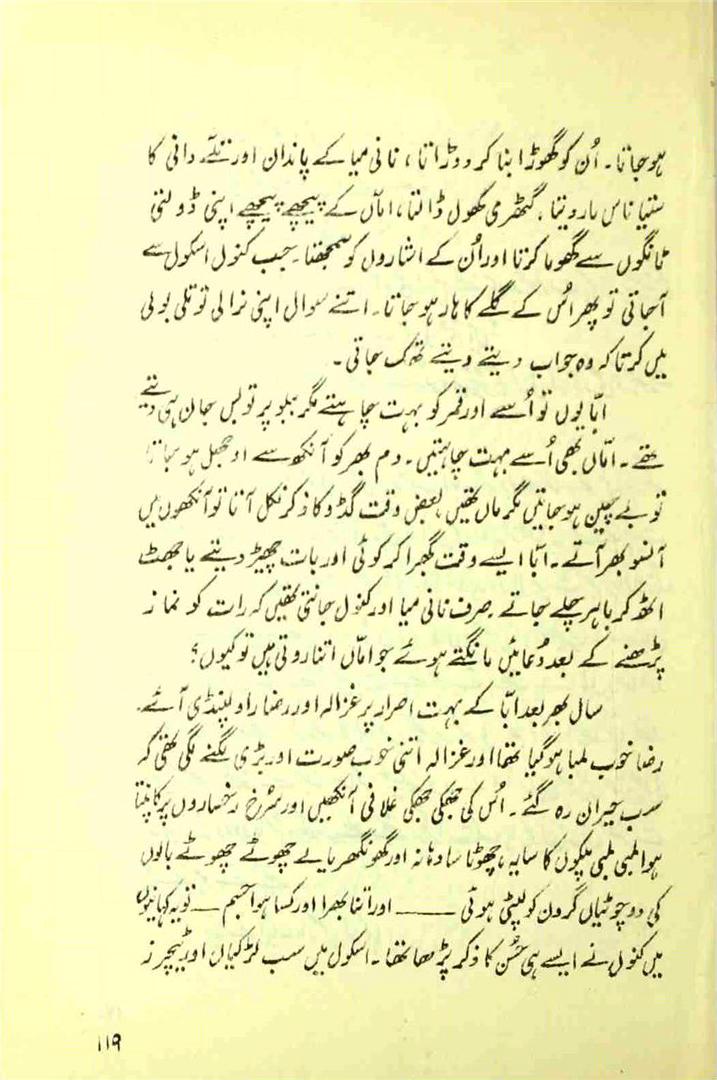 ہو جاتا۔ اُن کو گھوڑا بنا کر دوڑاتا، نانی میا کے پاندان اور تِلّے دانی کا
ستیا ناس مار دیتا، گٹھری کھول ڈالتا، اماں کے پیچھے پیچھے اپنی ڈولتی
ٹانگوں سے گھوما کرتا اور اُن کے اشاروں کو سمجھتا۔ جب کنول اسکول سے
آ جاتی تو پھر اُس کے گلے کا ہار ہو جاتا۔ اتنے سوال اپنی نرالی توتلی بولی
میں کرتا کہ وہ جواب دیتے دیتے تھک جاتی۔
ابّا یوں تو اُسے اور قمر کو بہت چاہتے مگر ببلو پر تو بس جان ہی دیتے
تھے۔ امّاں بھی اُسے بہت چاہتیں۔ دم بھر کو آنکھ سے اوجھل ہو جاتا
تو بے چین ہو جاتیں مگر ماں تھیں بعض وقت گڈو کا ذکر نکل آتا تو آنکھوں میں
آنسو بھر آتے۔ ابّا ایسے وقت گھبرا کر کوئی اور بات چھیڑ دیتے یا جھٹ
اٹھ کر باہر چلے جاتے صرف نانی میا اور کنول جانتی تھیں کہ رات کو نماز
پڑھنے کے بعد دُعائیں مانگتے ہوئے جو امّاں اتنا روتی ہیں تو کیوں؟
سال بھر بعد ابّا کے بہت اصرار پر غزالہ اور رضا راولپنڈی آئے۔
رضا خوب لمبا ہو گیا تھا اور غزالہ اتنی خوب صورت اور بڑی لگنے لگی تھی کہ
سب حیران رہ گئے۔ اُس کی جھکی جھکی غلافی آنکھیں اور سُرخ رخساروں پر کانپتا
ہوا لمبی لمبی پلکوں کا سایہ، چھوٹا سا دہانہ اور گھونگھریالے چھوٹے چھوٹے بالوں
کی دو چوٹیاں گردن کو لپٹی ہوئی —— اور اتنا بھرا اور کسا ہوا جسم — توبہ کہانیوں
میں کنول نے ایسے ہی حُسن کا ذکر پڑھا تھا۔ اسکول میں سب لڑکیاں اور ٹیچرز
۱۱۹